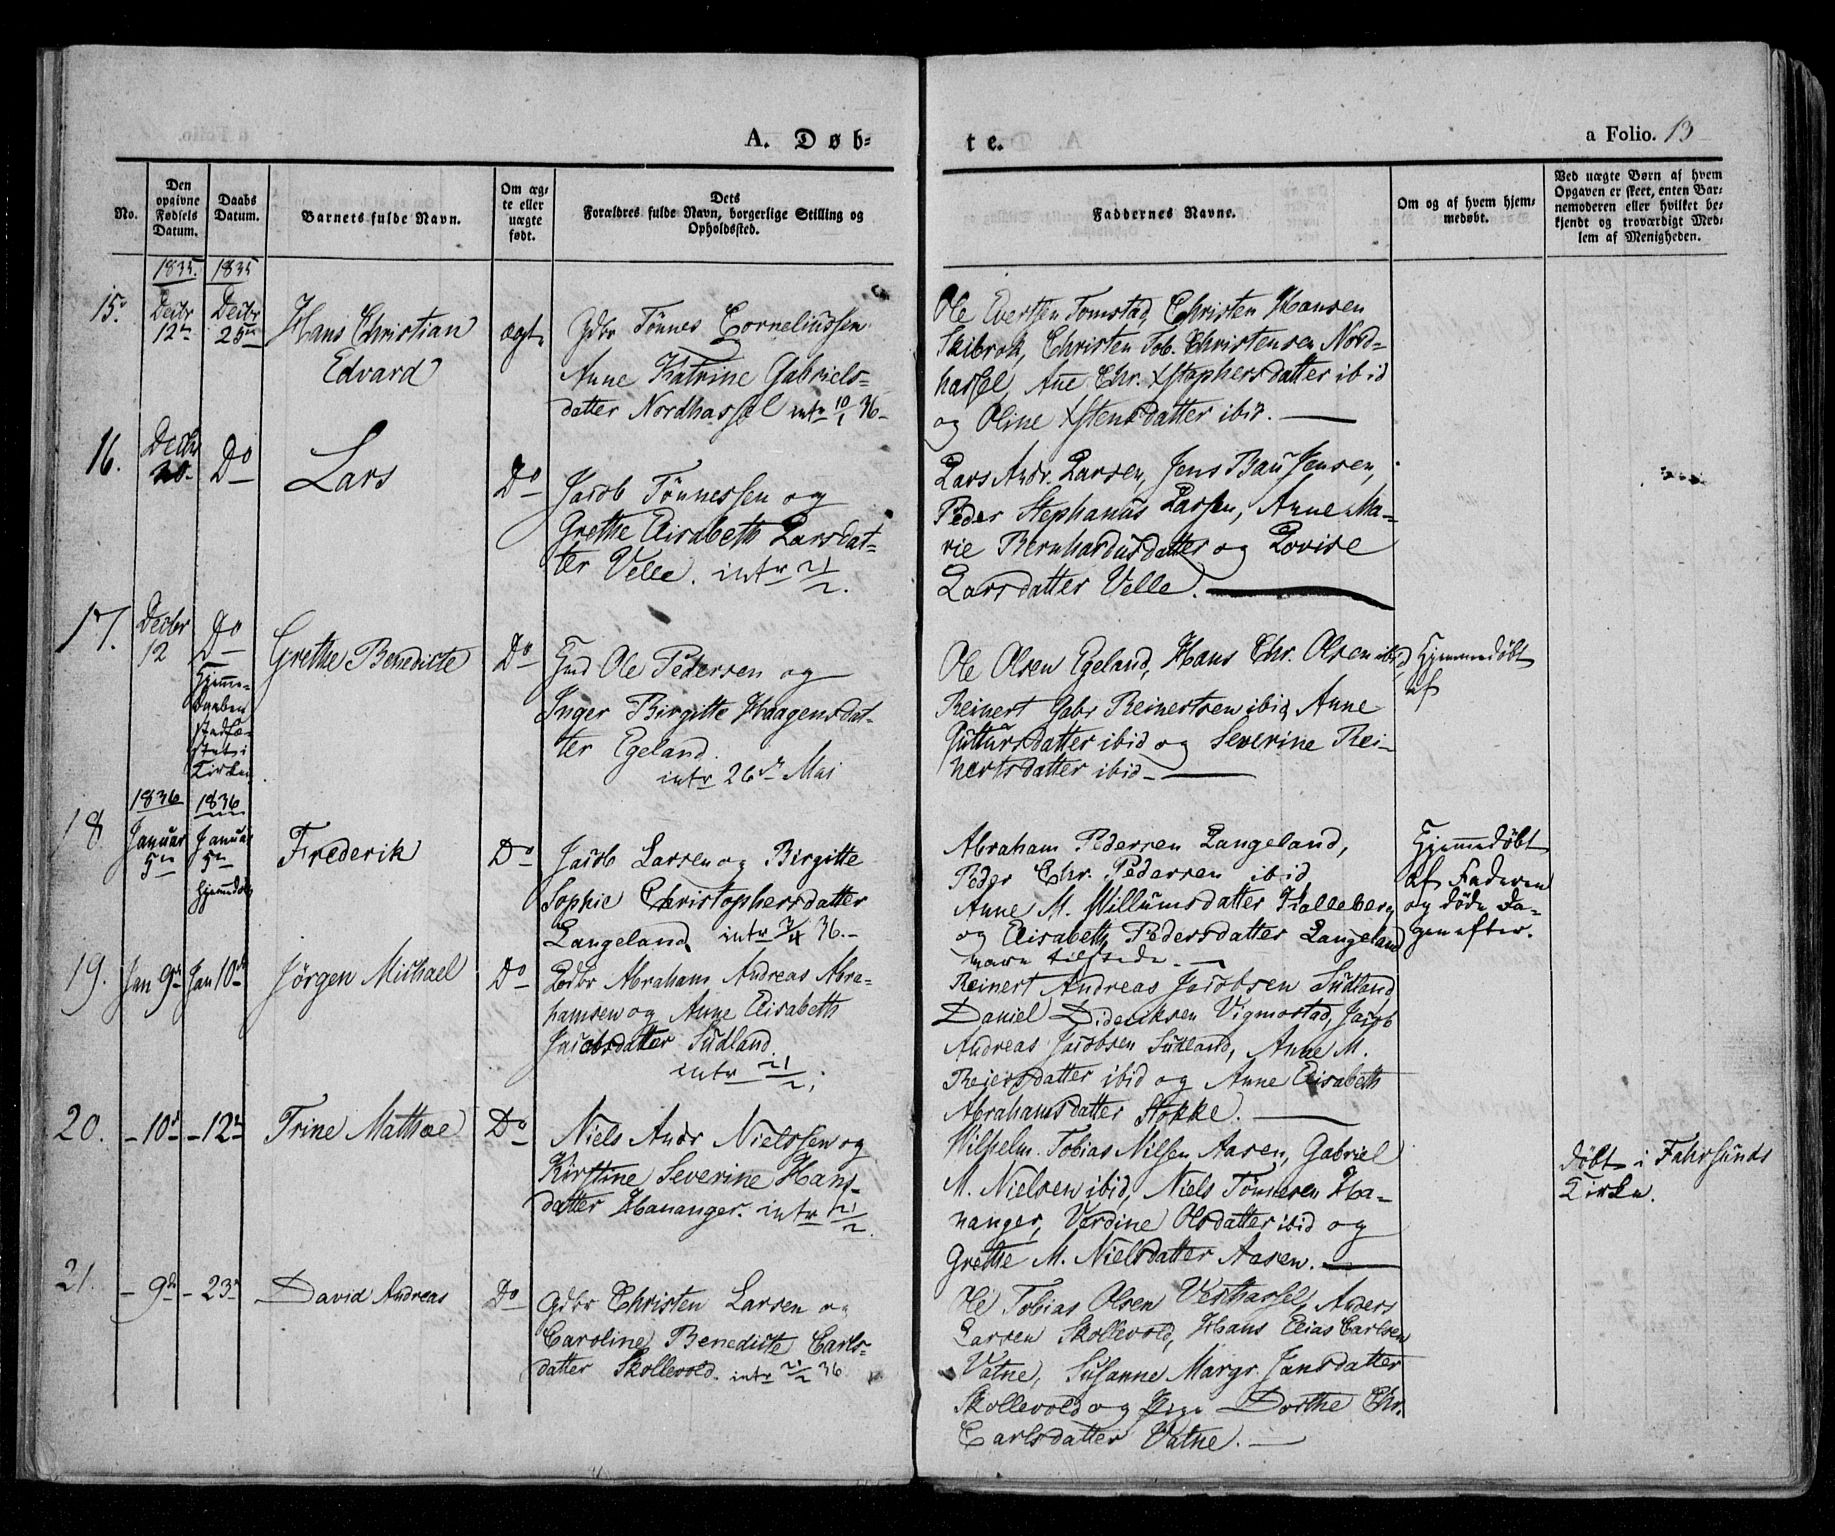 A. Døb-
te.
a Folio. 13
No.
Den opgivne Fødsels Datum.
Daabs Datum.
Barnets fulde Navn.
Om ægte eller uægte født.
Dets
Forældres fulde Navn, borgerlige Stilling og
Opholdssted.
Faddernes Navne.
Om og af hvem hjem-
medøbt.
Ved uægte Børn af hvem
Opgaven er skeet, enten Bar-
nemoderen eller hvilket be-
kjendt og troværdigt Med-
lem af Menigheden.
1835. 1835
15.
Decbr
12te
Decbr
25de
Hans Christian
Edvard
ægt.
Gdbr Tönnes Corneliussen
Anne Katrine Gabriels-
datter Nordhassel intr 10/1 36-
Ole Evertsen Tomstad, Christen Hansen
Skibrok, Christen Tob. Christensen Nord-
hassel, Ane Chr. Xstophersdatter ibid
og Oline Xstensdatter ibid.
16.
Decbr
20-
Do
Lars
Do
Jacob Tönnessen og
Grethe Elisabeth Larsdat-
ter Velle. intr 21/2.
Lars Andr. Larsen, Jens Bau Jensen,
Peder Stephanus Larsen, Anne Ma-
rie Bernhardusdatter og Lovise
Larsdatter Velle.
17.
Decbr
12
Do
Hjemme-
daaben
stadfæ-
stet i
Kirken
Grethe Benedicte
Do
Gmd Ole Pedersen og
Inger Birgitte Haagensdat-
ter Egeland.
intr 26de Mai
Ole Olsen Egeland, Hans Chr. Olsen ibid,
Reinert Gabr Reinertsen ibid, Anne
Gutursdatter ibid og Severine Rei-
nertsdatter ibid-
Hjemmedøbt
af
1836 1836
18
Januar
5te
Januar
5te
Hjemmedøbt
Frederik
Do
Jacob Larsen og Birgitte
Sophie Christophersdatter
Langeland, intr 3/4 36.-
Abraham Pedersen Langeland,
Peder Chr. Pedersen ibid
Anne M. Willumsdatter Kalleberg
og Elisabeth Pedersdatter Langeland
vare tilstede.
Hjemmedøbt
af Faderen
og døde Da-
gen efter.
19. Jan 9de Jan 10de
Jörgen Michael
Do
Gdbr Abraham Andreas Abra-
hamsen og Anne Elisabeth
Jacobsdatter Sudland.
intr 21/2.
Reinert Andreas Jacobsen Sudland,
Daniel Dideriksen Vigmostad, Jacob
Andreas Jacobsen Sudland, Anne M.
Reiersdatter ibid og Anne Elisabeth
Abrahamsdatter Stokke.
20. - 10de - 12te
Trine Mathæ
Do
Niels Andr Nielssen og
Kirstine Severine Hans-
datter Hananger. intr 21/2.
Wilhelm Tobias Nilsen Aasen, Gabriel
M. Nielsen ibid, Niels Tönnesen Ha-
nanger, Verdine Olsdatter ibid og
Grethe M. Nielsdatter Aasen.
døbt i Fahrsunds
Kirke.
21. - 9de - 23de
David Andreas
Do
Gdbr Christen Larsen og
Caroline Benedicte Carls-
datter Skollevold. intr 21/2 36
Ole Tobias Olsen Vesthassel, Anders
Larsen Skollevold, Hans Elias Carlsen
Vatne, Susanne Margr. Jansdatter
Skollevold og Pige Dorthe Chr.
Carlsdatter Vatne.